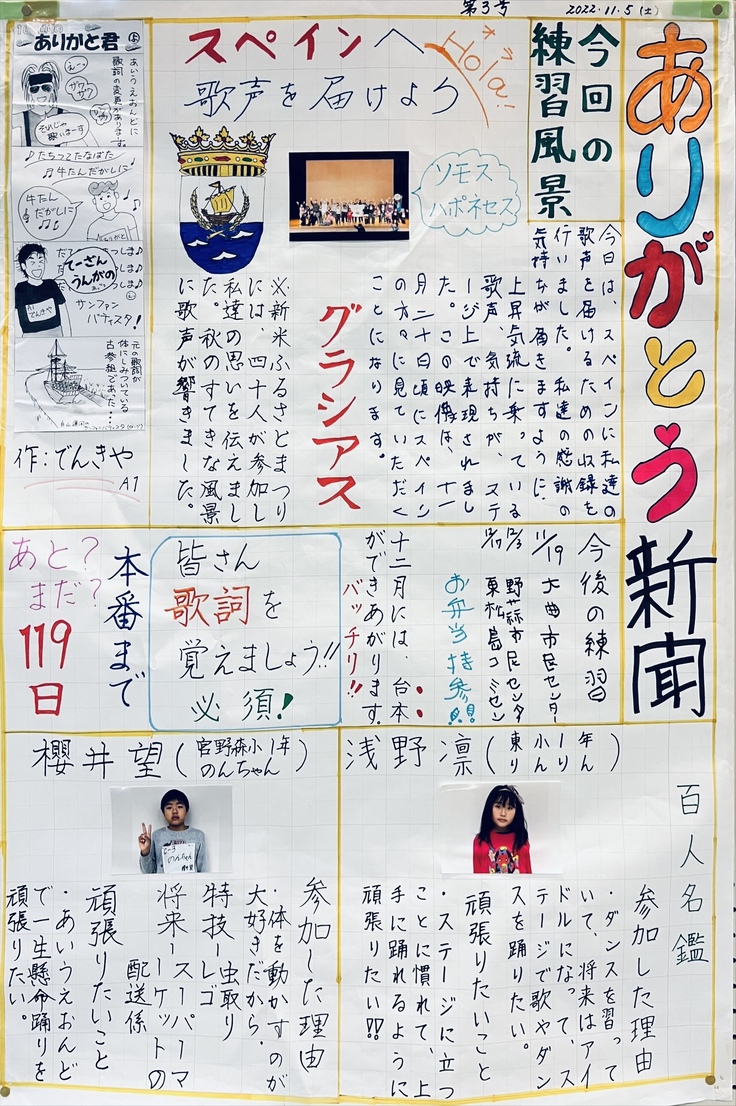 第3号
2022.11.5(土)
ありがとう新聞
今回の
練習風景
スペインへ
Hola!
オラ
歌声を届けよう
ソモス
ハポネセス
今日は、スペインに私達の
歌声を届けるための収録を
行いました。私達の感謝の
気持ちが届きますように、
上昇気流に乗っている
歌声、気持ちが、ステ
ージ上で表現されまし
た。この映像は、十一
月二十日頃にスペイン
の方々に見ていただく
ことになります。
グラシアス
※新米ふるさとまつり
には、四十人が参加し
私達の思いを伝えまし
た。秋のすてきな風景
に歌声が響きました。
ありがと君
あいうえおんどに
歌詞の変声があります。
えーっ
ザワ
ザワ
それじゃ
歌いまーす
♪たちつてたなばた
♬牛たんだがしに♪
牛たん
だがしに
てーさん
うんがの
つしま♪
しま♪
しま♪
A1
でんきや
サンファン
バティスタ!
元の歌詞が
体にしみついている
古参組であった…
作:でんきや
A1
今後の練習
11/19 大曲市民センター
12/3 野蒜市民センター
12/17 東松島コミセン
お弁当持参!!
十二月には、台本
ができあがります。
バッチリ!!
皆さん
歌詞を
覚えましょう!!
必須!
本番まで
あと?
まだ?
119
日
百人名鑑
浅野凛(東小1年 りんりん)
参加した理由
・ダンスを習って
いて、将来はアイ
ドルになって、ス
テージで歌やダン
スを踊りたい。
頑張りたいこと
・ステージに立つ
ことに慣れて、上
手に踊れるように
頑張りたい!!
櫻井望(宮野森小1年 のんちゃん)
のんちゃん
参加した理由
・体を動かすのが
大好きだから。
特技ー虫取り
レゴ
将来ースーパーマ
ーケットの
配送係
頑張りたいこと
・あいうえおんど
で一生懸命踊りを
頑張りたい。